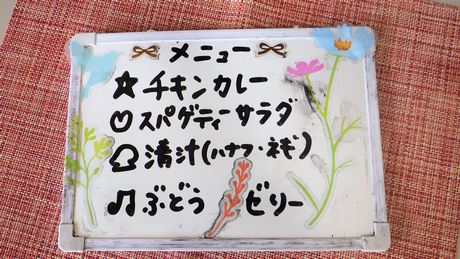 メニュー
☆チキンカレー
♡スパゲティーサラダ
♤清汁(ハナフ・ネギ)
♫ぶどうゼリー